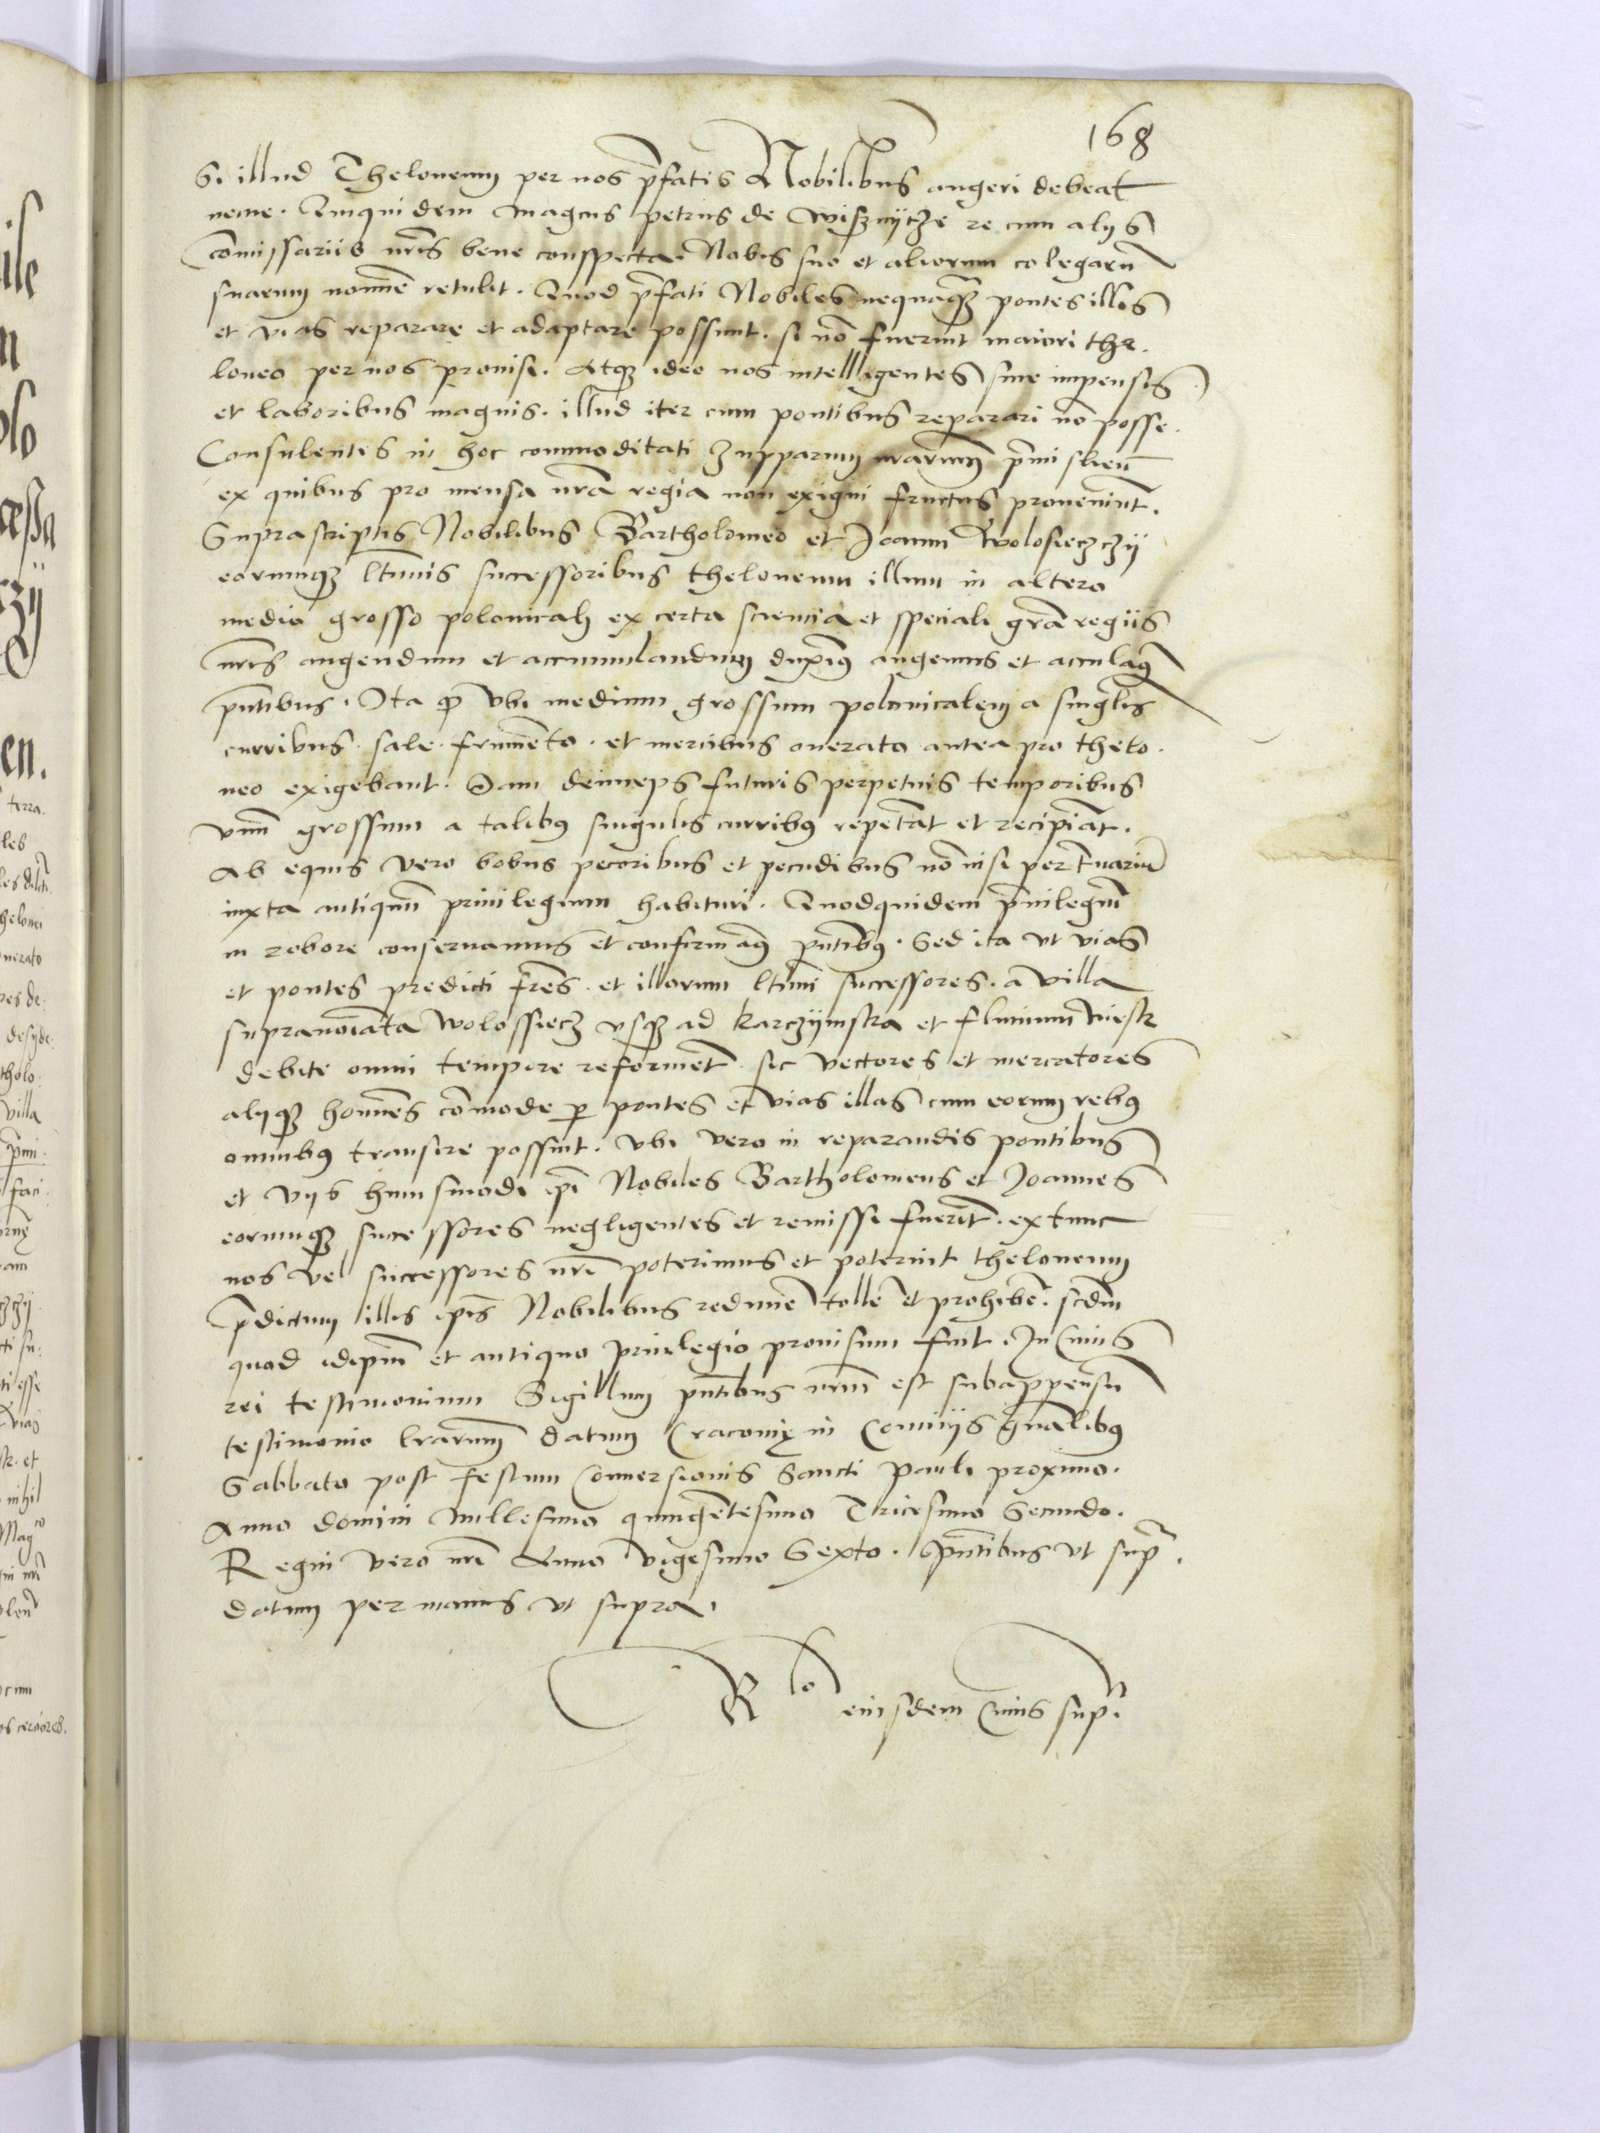 168
Si illud Thelonemm per nos p̄fatis Nobilibus augeri debeat
necne. Quiquidem magcus petrus de Wisznycze re cum alys
com̄issariis n̄ris bene conspecta Nobis suo et aliorum colegarū
suarum nomīe retulit. Quod p̄fati Nobiles nequaq̄ pontes illos
et vias reparare et adaptare possunt. si nō fuerint maiori the.
loneo per nos provisi. Atqz ideo nos intelligentes sine impensis
et laboribus magnis. illud iter cum pontibus reparari nō posse.
Consulentes in hoc commoditati zupparum n̄rarum p̄misliēn̄
ex quibus pro mensa n̄ra regia non exigui fructus proveniunt.
Suprascriptis Nobilibus Bartholomeo et Joanni Wolosieczczy
eorumqz ltimis successoribus theloneum illum in altero
medio grosso polonicali ex certa sciencia et speciali gr̄a regiis
n̄ris augendum et accumulandum duxim9 augemus et accūlam9
pn̄tibus. Ita qz vbi medium grossum polonicalem a singulis
curribus. sale. frumēto. et mercibus onerato antea pro thelo.
neo exigebant. Iam deinceps futuris perpetuis temporibus
vnū grossum a talib9 singulis currib9 repetāt et recipiāt.
Ab equis vero bobus pecoribus et pecudibus nō nisi per t̄nariū
iuxta antiquū privilegium habituri. Quodquidem p̄vilegiū
in robore conservamus et confirmam9 pn̄tib9. Sed ita vt vias
et pontes predicti fr̄es. et illorum ltimi successores. a villa
supranoīata Wolossiecz vsqz ad karczymska et fluvium Niestr
debite omni tempore reforment. sic vectores et mercatores
alyqz homīes com̄ode p pontes et vias illas cum eorum reb9
omnib9 transire possint. vbi vero in reparandis pontibus
et vijs huiusmodi ip̄i Nobiles Bartholomeus et Joannes
eorumqz successores negligentes et remissi fuerīt. extunc
nos vel successores n̄ri poterimus et poterint theloneum
p̄dictum illis ip̄is Nobilibus redimē tollē et prohibē. scdm
quod idip̄m et antiquo privilegio provisum fuit. In Cuius
rei testimonium Sigillum pn̄tibus n̄rm est subappensū
testimonio lr̄arum datum Cracovię in Conviis gn̄alib9
Sabbato post festum Conversionis Sancti Pauli proximo.
Anno domini millesimo quingētesimo Tricesimo Secundo.
Regni vero n̄ri Anno vigesimo Sexto. Pn̄tibus vt sup̄.
datum per manus vt supra.
Rlo eiusdem Cuius sup̄.